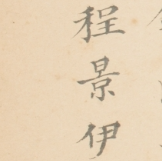 程景伊